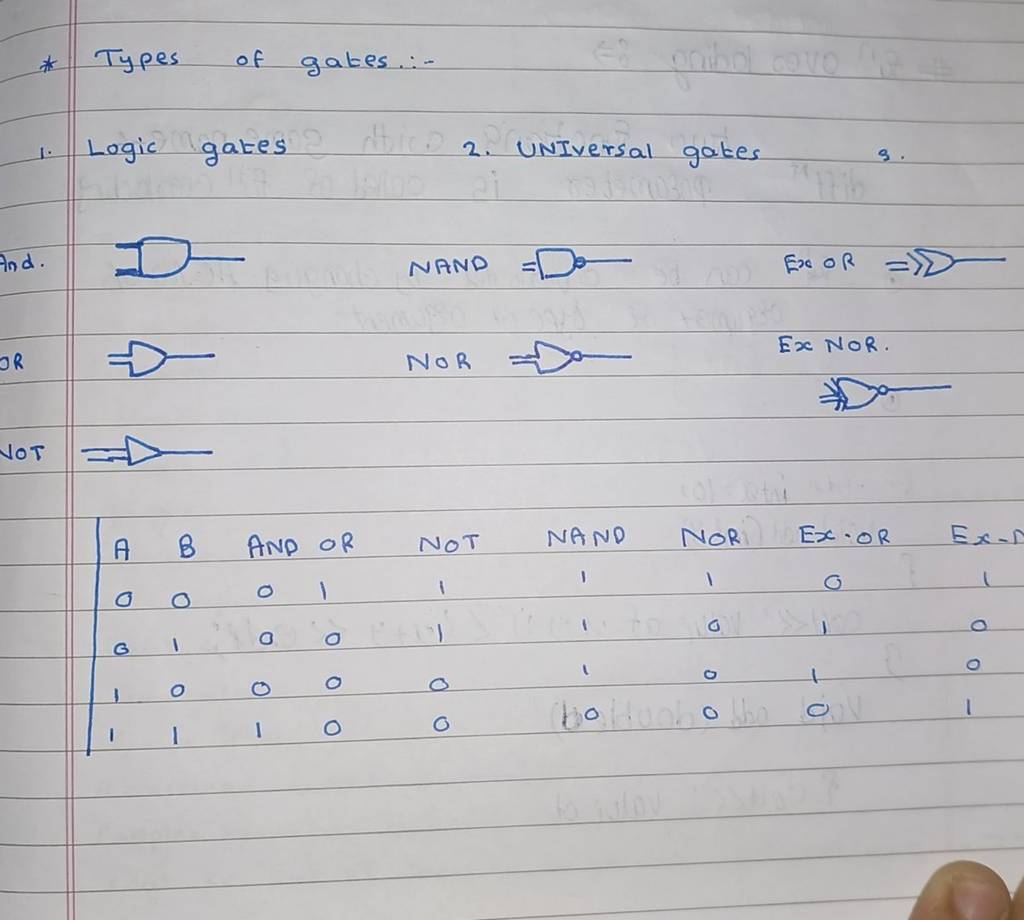 * Types of gates :-
1. Logic gates 2. UNIversal gates 3.
And. NAND Ex OR
OR NOR Ex NOR.
NOT
A B AND OR NOT NAND NOR Ex-OR Ex-N
0 0 0 1 1 1 1 0 1
0 1 0 0 1 1 0 1 0
1 0 0 0 0 1 0 1 0
1 1 1 0 0 0 0 0 1